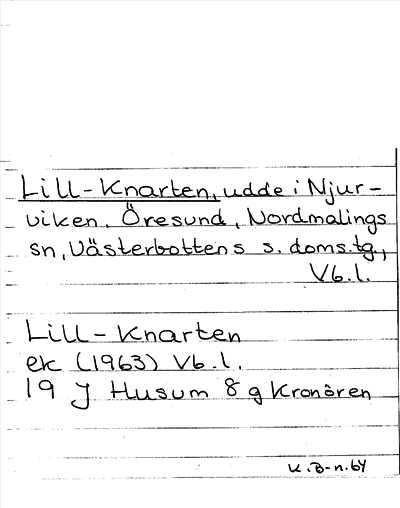 Lill-Knarten, udde i Njur-
viken, Öresund, Nordmalings
sn, Västerbottens s. doms.tg.,
Vb.l.
Lill-Knarten
ek (1963) Vb.l.
19 J Husum 8 g Kronören
K.B-n.64